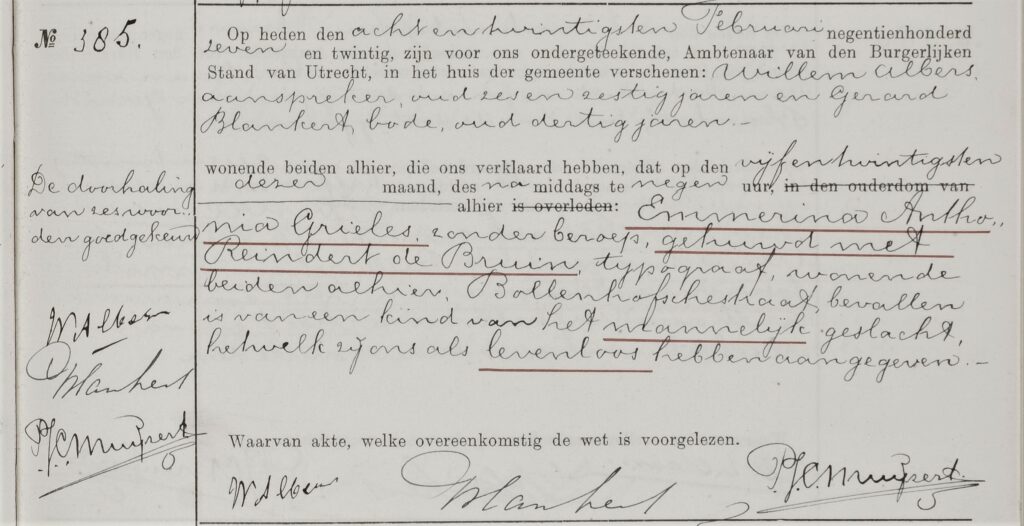 № 385.
Op heden den achtentwintigsten Februari negentienhonderd
zeven en twintig, zijn voor ons ondergeteekende, Ambtenaar van den Burgerlijken
Stand van Utrecht, in het huis der gemeente verschenen: Willem Albers,
aanspreker, oud zes en zestig jaren en Gerard
Blankert, bode, oud dertig jaren. –
wonende beiden alhier, die ons verklaard hebben, dat op den vijfentwintigsten
dezer maand, des na middags te negen uur, in den ouderdom van
alhier is overleden: Emmerina Antho„
nia Grieles, zonder beroep, gehuwd met
Reindert de Bruin, typograaf, wonende
beiden alhier, Bollenhofschestraat, bevallen
is van een kind van het mannelijk geslacht,
hetwelk zij ons als levenloos hebben aangegeven. –
De doorhaling
van zes woor„
den goedgekeurd
W Albers
Blankert
P.J.C. Muijsert
Waarvan akte, welke overeenkomstig de wet is voorgelezen.
W Albers
Blankert
P.J.C. Muijsert